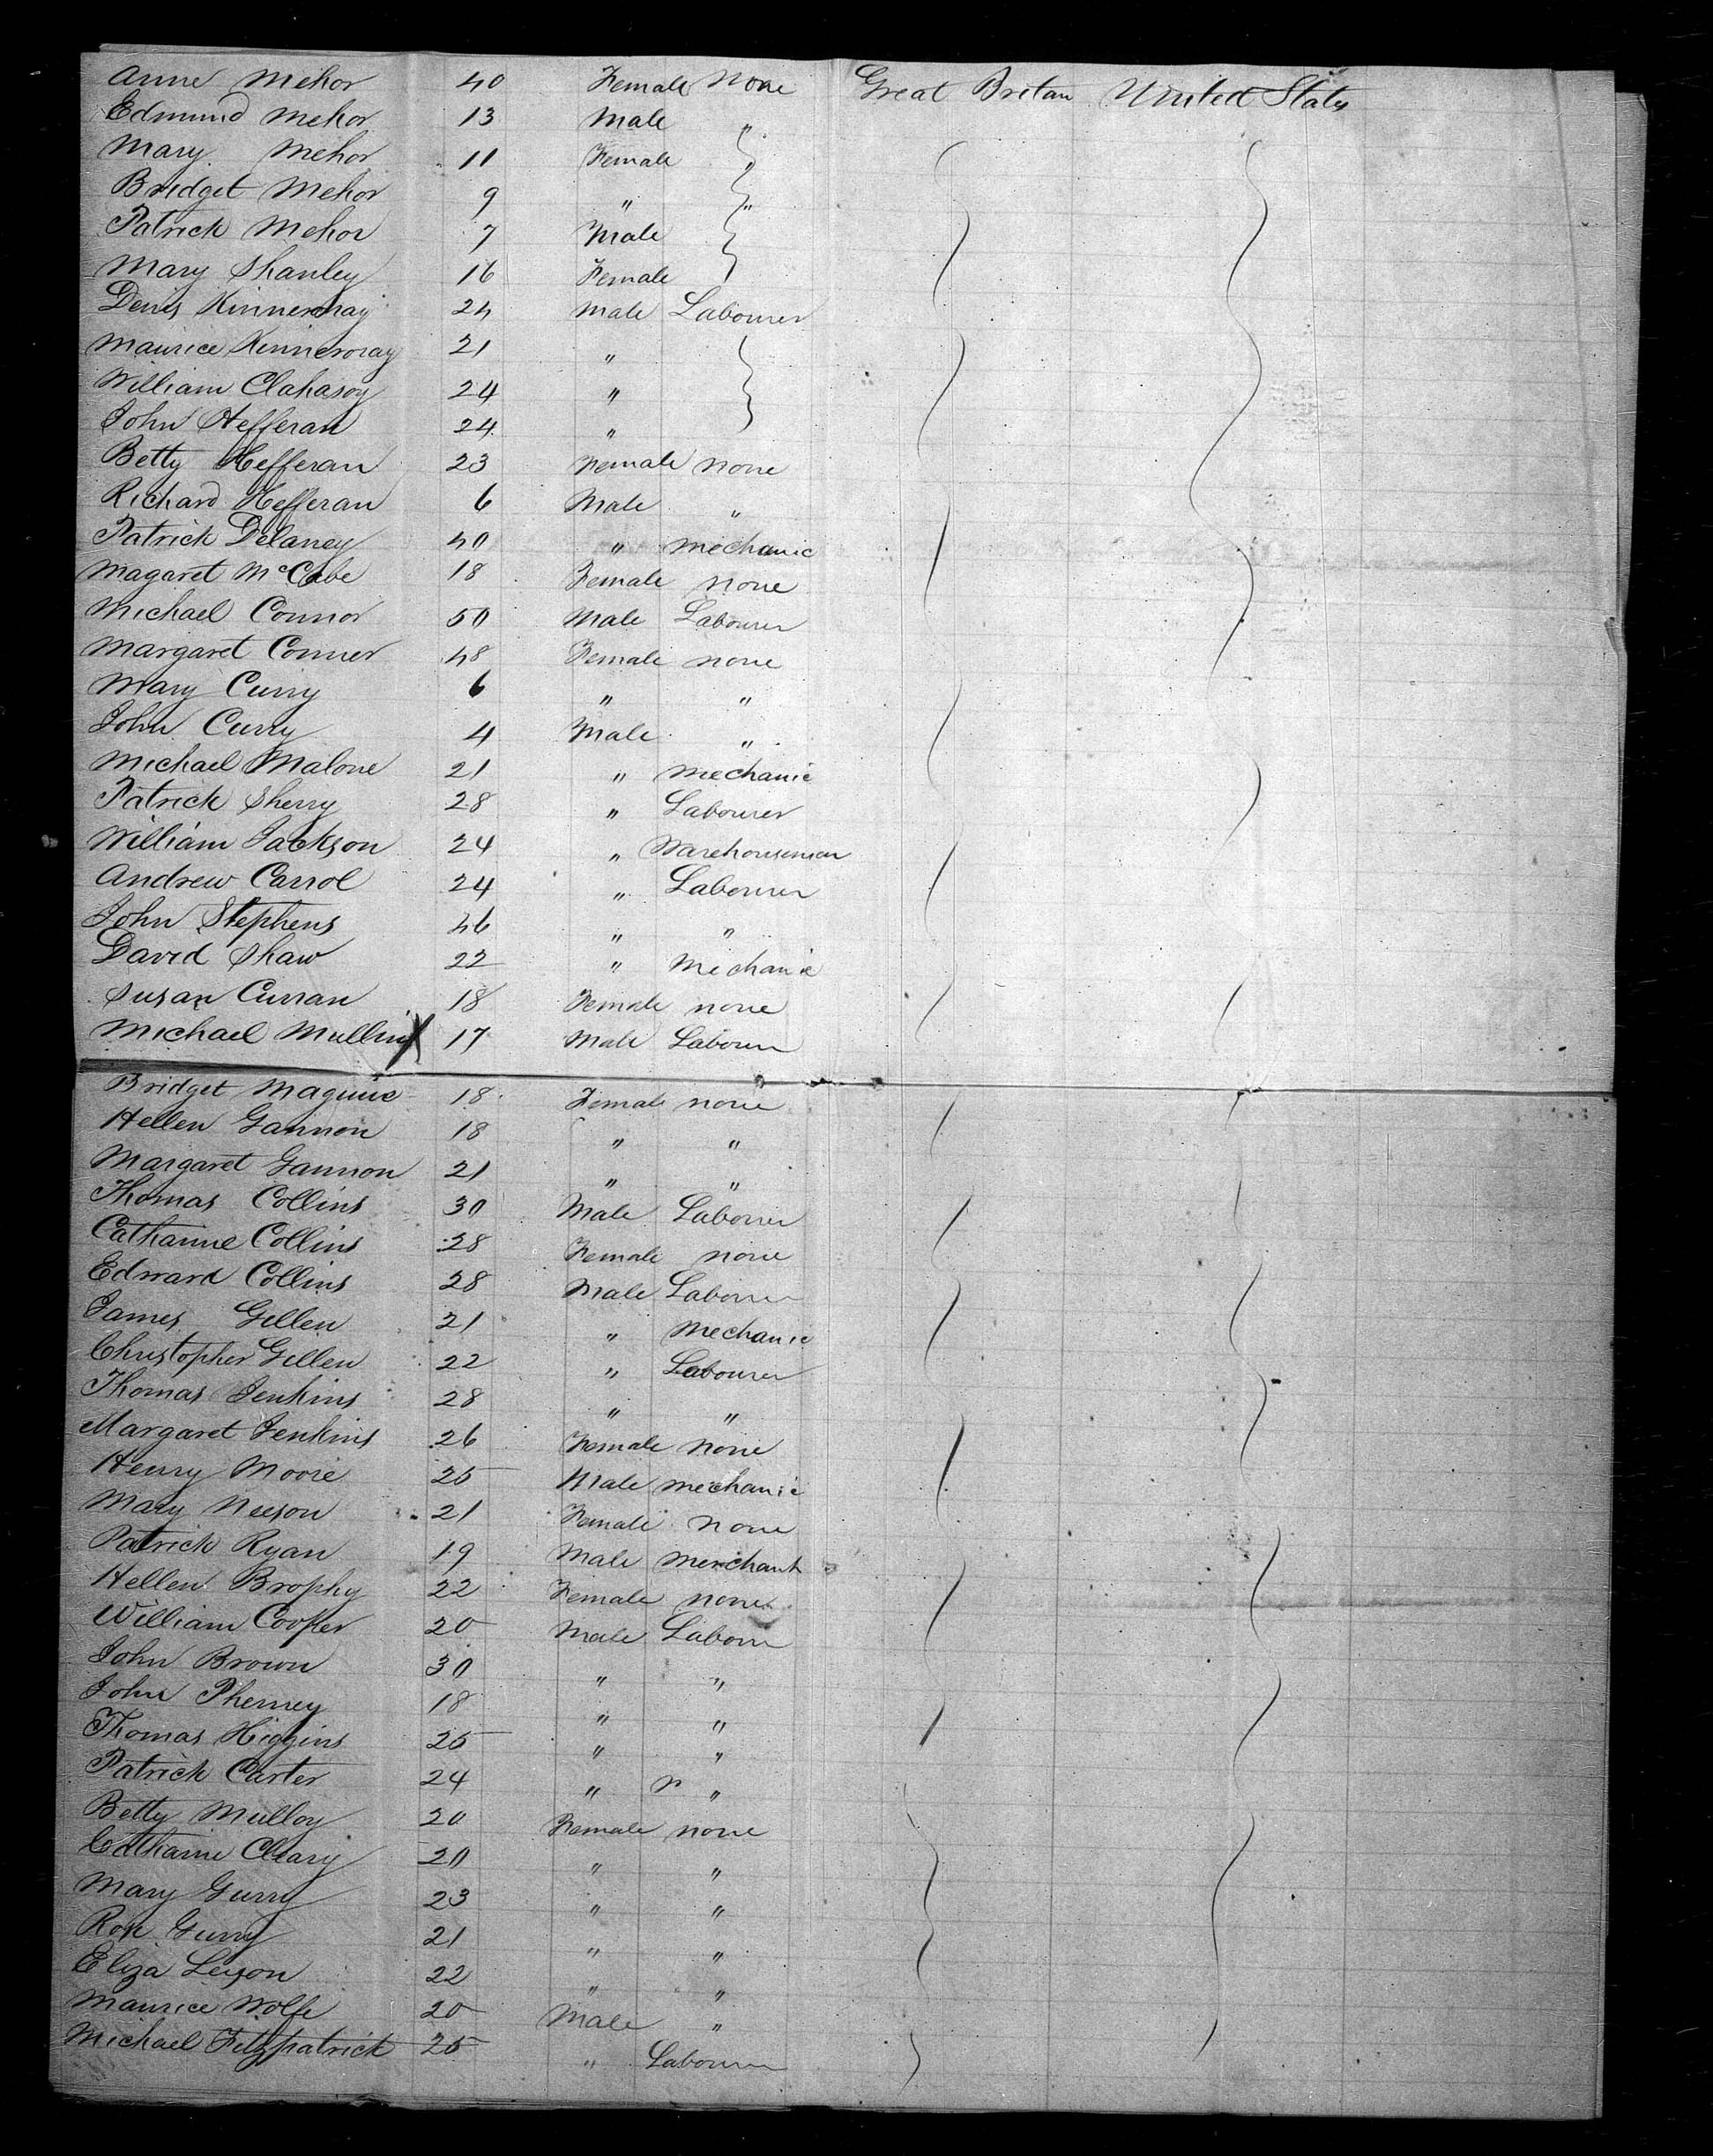 Anne Mehor 40 Female None Great Britan United States
Edmund Mehor 13 Male "
Mary Mehor 11 Female "
Bridget Mehor 9 " "
Patrick Mehor 7 Male
Mary Shanley 16 Female
Denis 24 Male Labourer
Maurice 21 "
William Clahasoy 24 "
John Hefferan 24 "
Betty Hefferan 23 Female none
Richard Hefferan 6 Male "
Patrick Delaney 40 " Mechanic
Magaret McCabe 18 Female none
Michael Connor 50 Male Labourer
Margaret Conner 48 Female none
Mary Curry 6 " "
John Curry 4 Male "
Michael Malone 21 " Mechanic
Patrick Sherry 28 " Labourer
William Jackson 24 " Warehouseman
Andrew Carrol 24 " Labourer
John Stephens 46 " "
David Shaw 22 " Mechanic
Susan Curran 18 Female none
Michael Mullin X 17 Male Labourer
Bridget Maguire 18 Female none
Hellen Gannon 18 " "
Margaret Gannon 21 " "
Thomas Collins 30 Male Labourer
Catharine Collins 28 Female none
Edward Collins 28 Male Labourer
James Gillen 21 " Mechanic
Christopher Gillen 22 " Labourer
Thomas Jenkins 28 " "
Margaret Jenkins 26 Female none
Henry Moore 25 Male mechanic
Mary Neeson 21 Female none
Patrick Ryan 19 Male merchant
Hellen Brophy 22 Female none
William Cooper 20 Male Labourer
John Brown 30 " "
John 18 " "
Thomas Higgins 25 " "
Patrick Carter 24 " "
Betty Mulloy 20 Female none
Catharine Cleary 20 " "
Mary Gurry 23 " "
Rose Gurry 21 " "
Eliza 22 " "
Maurice Wolfe 20 Male "
Michael Fitzpatrick 25 " Labourer